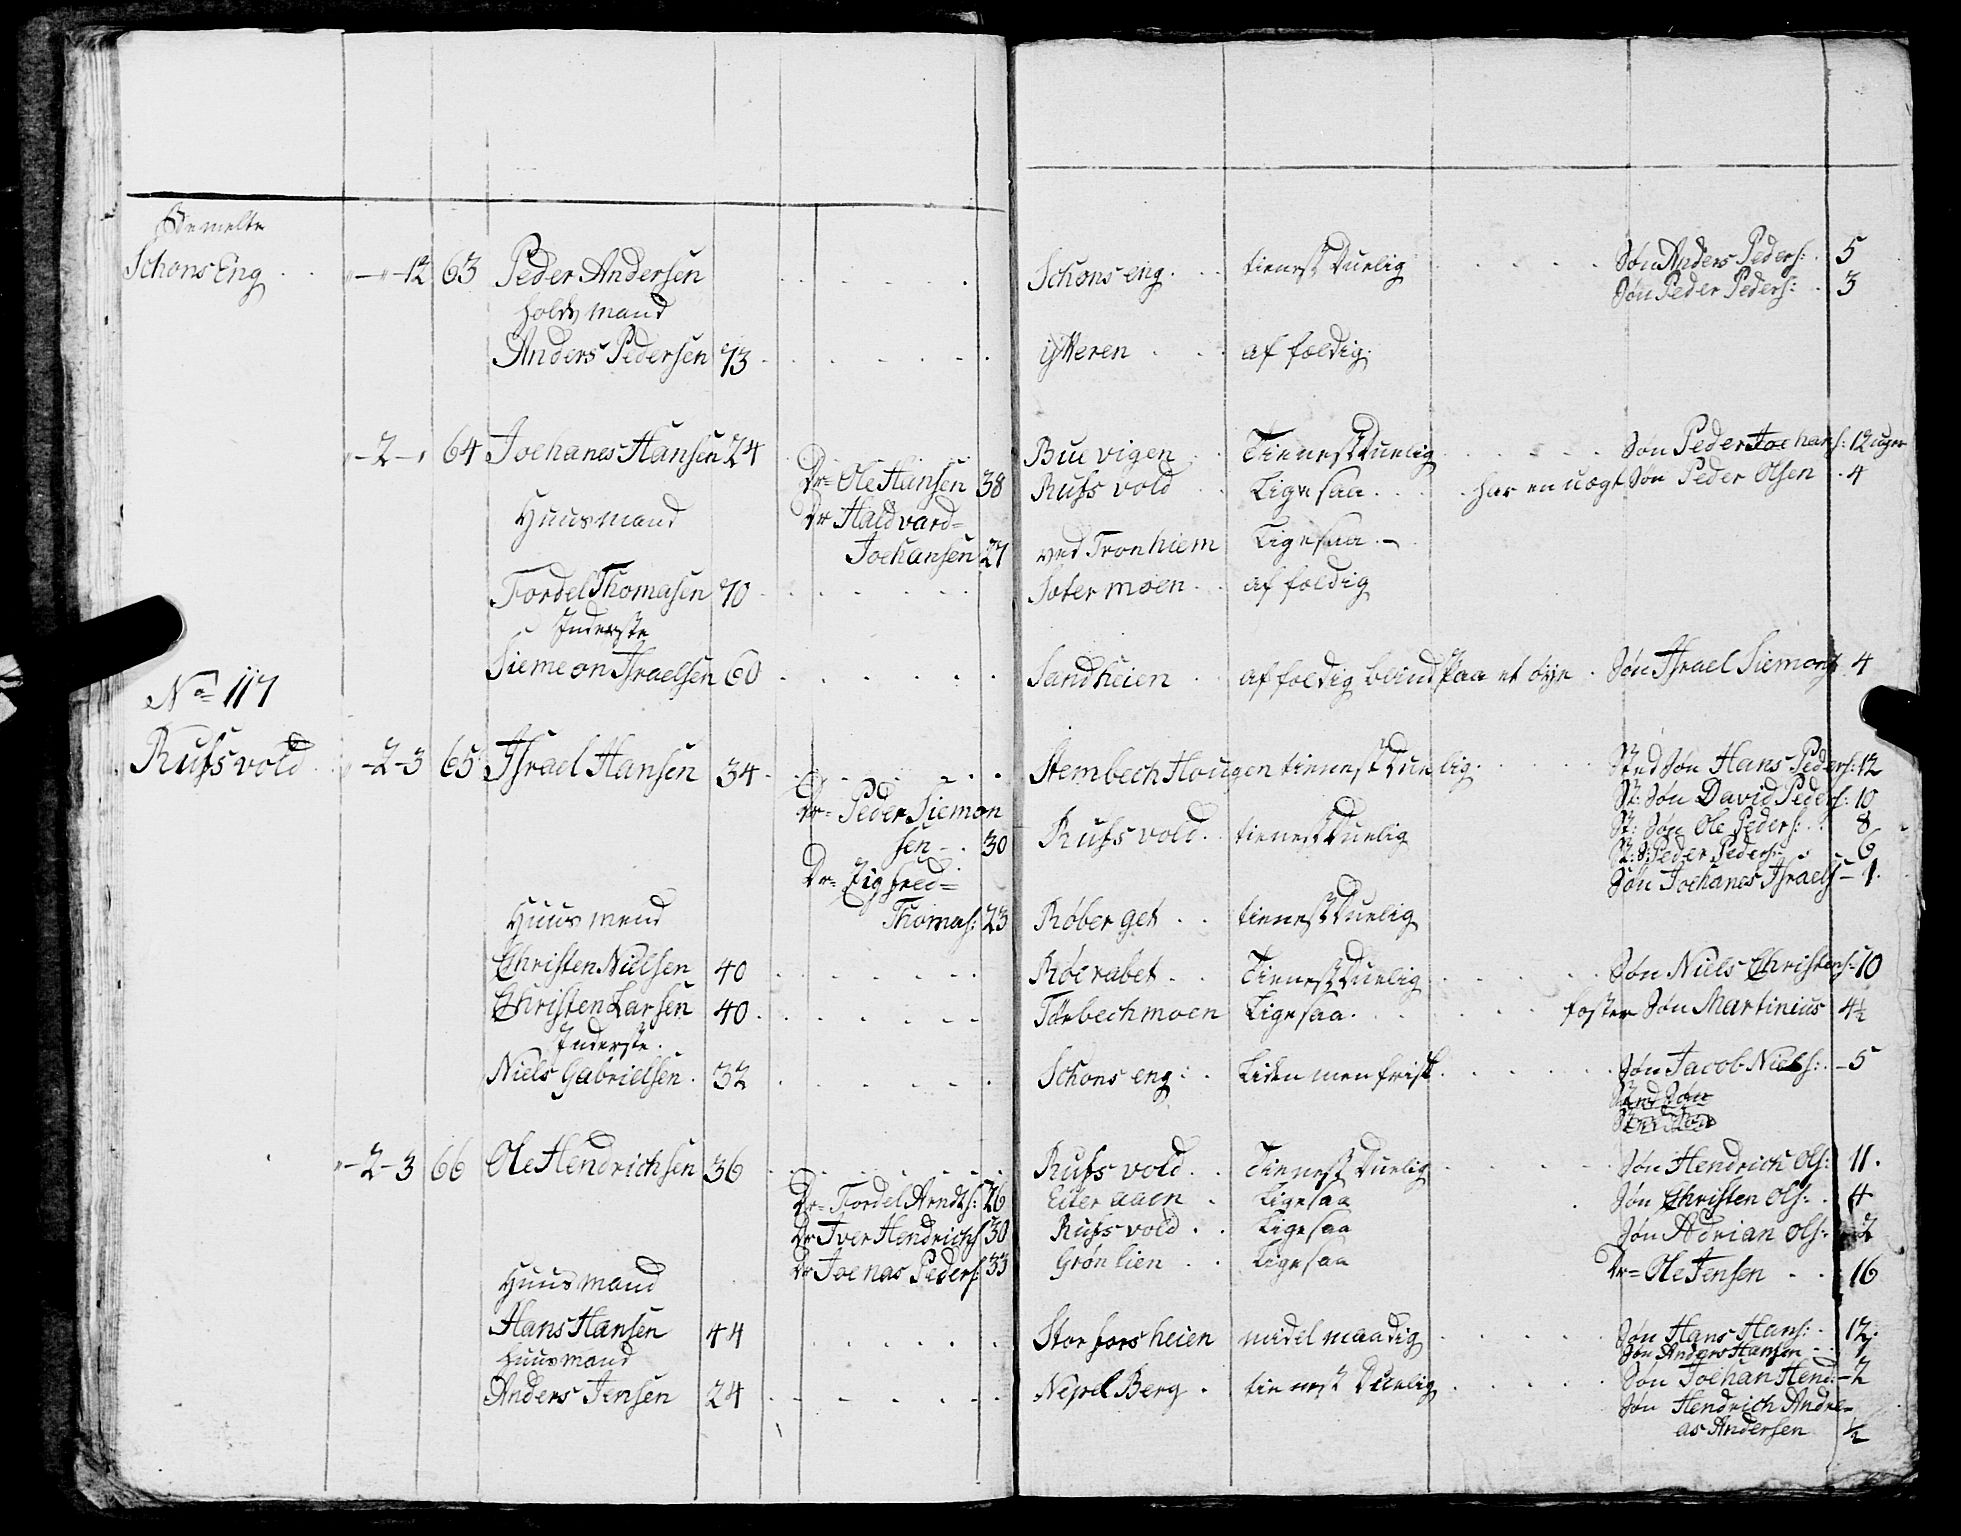 Bemelte
Schons Eng . . "-"-12 63 Peder Andersen . . . . . . Schons eng . . . tienest Duelig . . . . . Søn Anders Peders: . 5
Søn Peder Peders: . 3
folds mand
Anders Pedersen 73 . . . . . . . ytteren . . . af fældig.
"-2-" 64 Joehanes Hansen 24 . . . . . . Buevigen . . Tienest Duelig . . . . . Søn Peder Joehans: 12 uger
Dr= Ole Hansen 38 Rufsvold . . Ligesaa . . . . har en uægt Søn Peder Olsen . 4
Huusmand
Dr Haldvard=
Joehansen 27 ved Tronhiem Ligesaa . -
Tordel Thomasen 70 . . . . . . . Sæter moen . . af fældig
Inderste
Siemeon Israelsen 60 . . . . . . Sandheien . af fældig blind paa et öye . Søn Israel Siemons 4
No 117
Rufsvold . "-2-3 65 Israel Hansen 34 . . . . . . . Stembech Hougen tienest Duelig . . . . . Sted Søn Hans Peders: 12
St: Søn David Peders: 10
Dr= Peder Siemon
sen - . 30 Rufsvold . . tienest Duelig
St: Søn Ole Peders: . . 8
St: S: Peder Peders: - . 6
Søn Joehanes Israels - 1.
Dr= Zigfred=
Thomas: 23 Røberget . . tienest Duelig
Huus mend
Christen Nielsen 40 . . . . . . . Røerabet . Tienest Duelig . . . . . Søn Niels Christens: 10
Christen Larsen 40 . . . . . . . Törbechmoen Ligesaa . . . . . . foster Søn Martinius 4½
Inderste .
Niels Gabrielsen . 32 . . . . . . Schons eng : . Liden men frisk . . . . . Søn Jacob Niels: . -5
Sted Søn
"-2-3 66 Ole Hendrichsen 36 . . . . . . . . Rufsvold . . Tienest Duelig . . . . . Søn Hendrich Ols: 11.
Dr= Tordel Arndts: 26 Eiteraaen . Ligesaa . Søn Christen Ols: . 4
Dr Iver Hendrichs 30 Rufsvold . . Ligesaa Søn Adrian Ols: 2
Dr Joenas Peders: 33 Grønlien . . Ligesaa Dr= Ole Jensen . . 16
Huusmand
Hans Hansen 44 . . . . . . Storforsheien midelmaadig . . . . . Søn Hans Hans: - 12.
Søn Anders Hansen - . 7
huusmand
Anders Jensen 24 . . . . . . . Nepel Berg . tienest Duelig . . . . . Søn Joehan Hend: - 2
Søn Hendrich Andre=
as Andersen ½